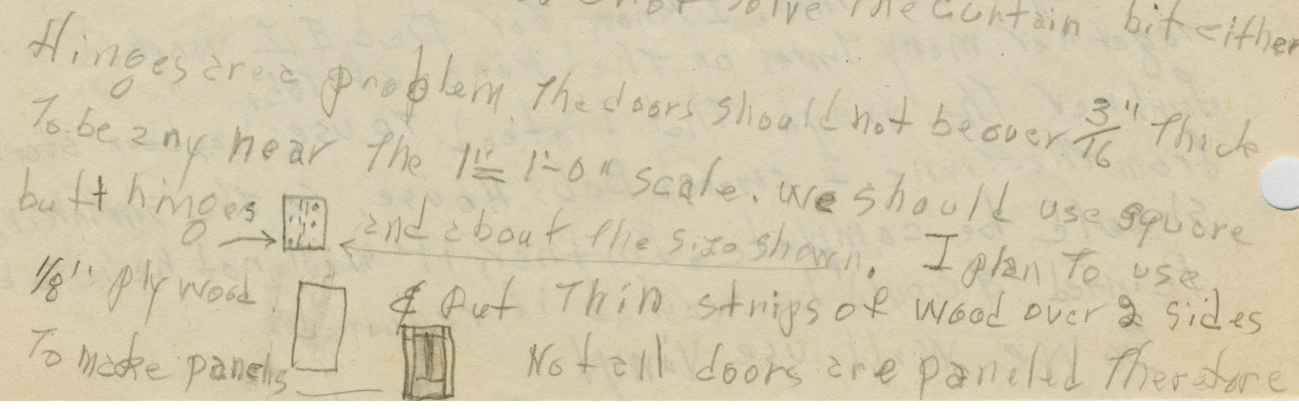 not solve the curtain bit either
Hinges are a problem. The doors should not be over 3/16" thick
To be any near the 1" = 1'-0" scale. We should use square
butt hinges and about the size shown. I plan to use
1/8" plywood & put Thin strips of wood over 2 sides
To make panels Not all doors are paneled Therefore